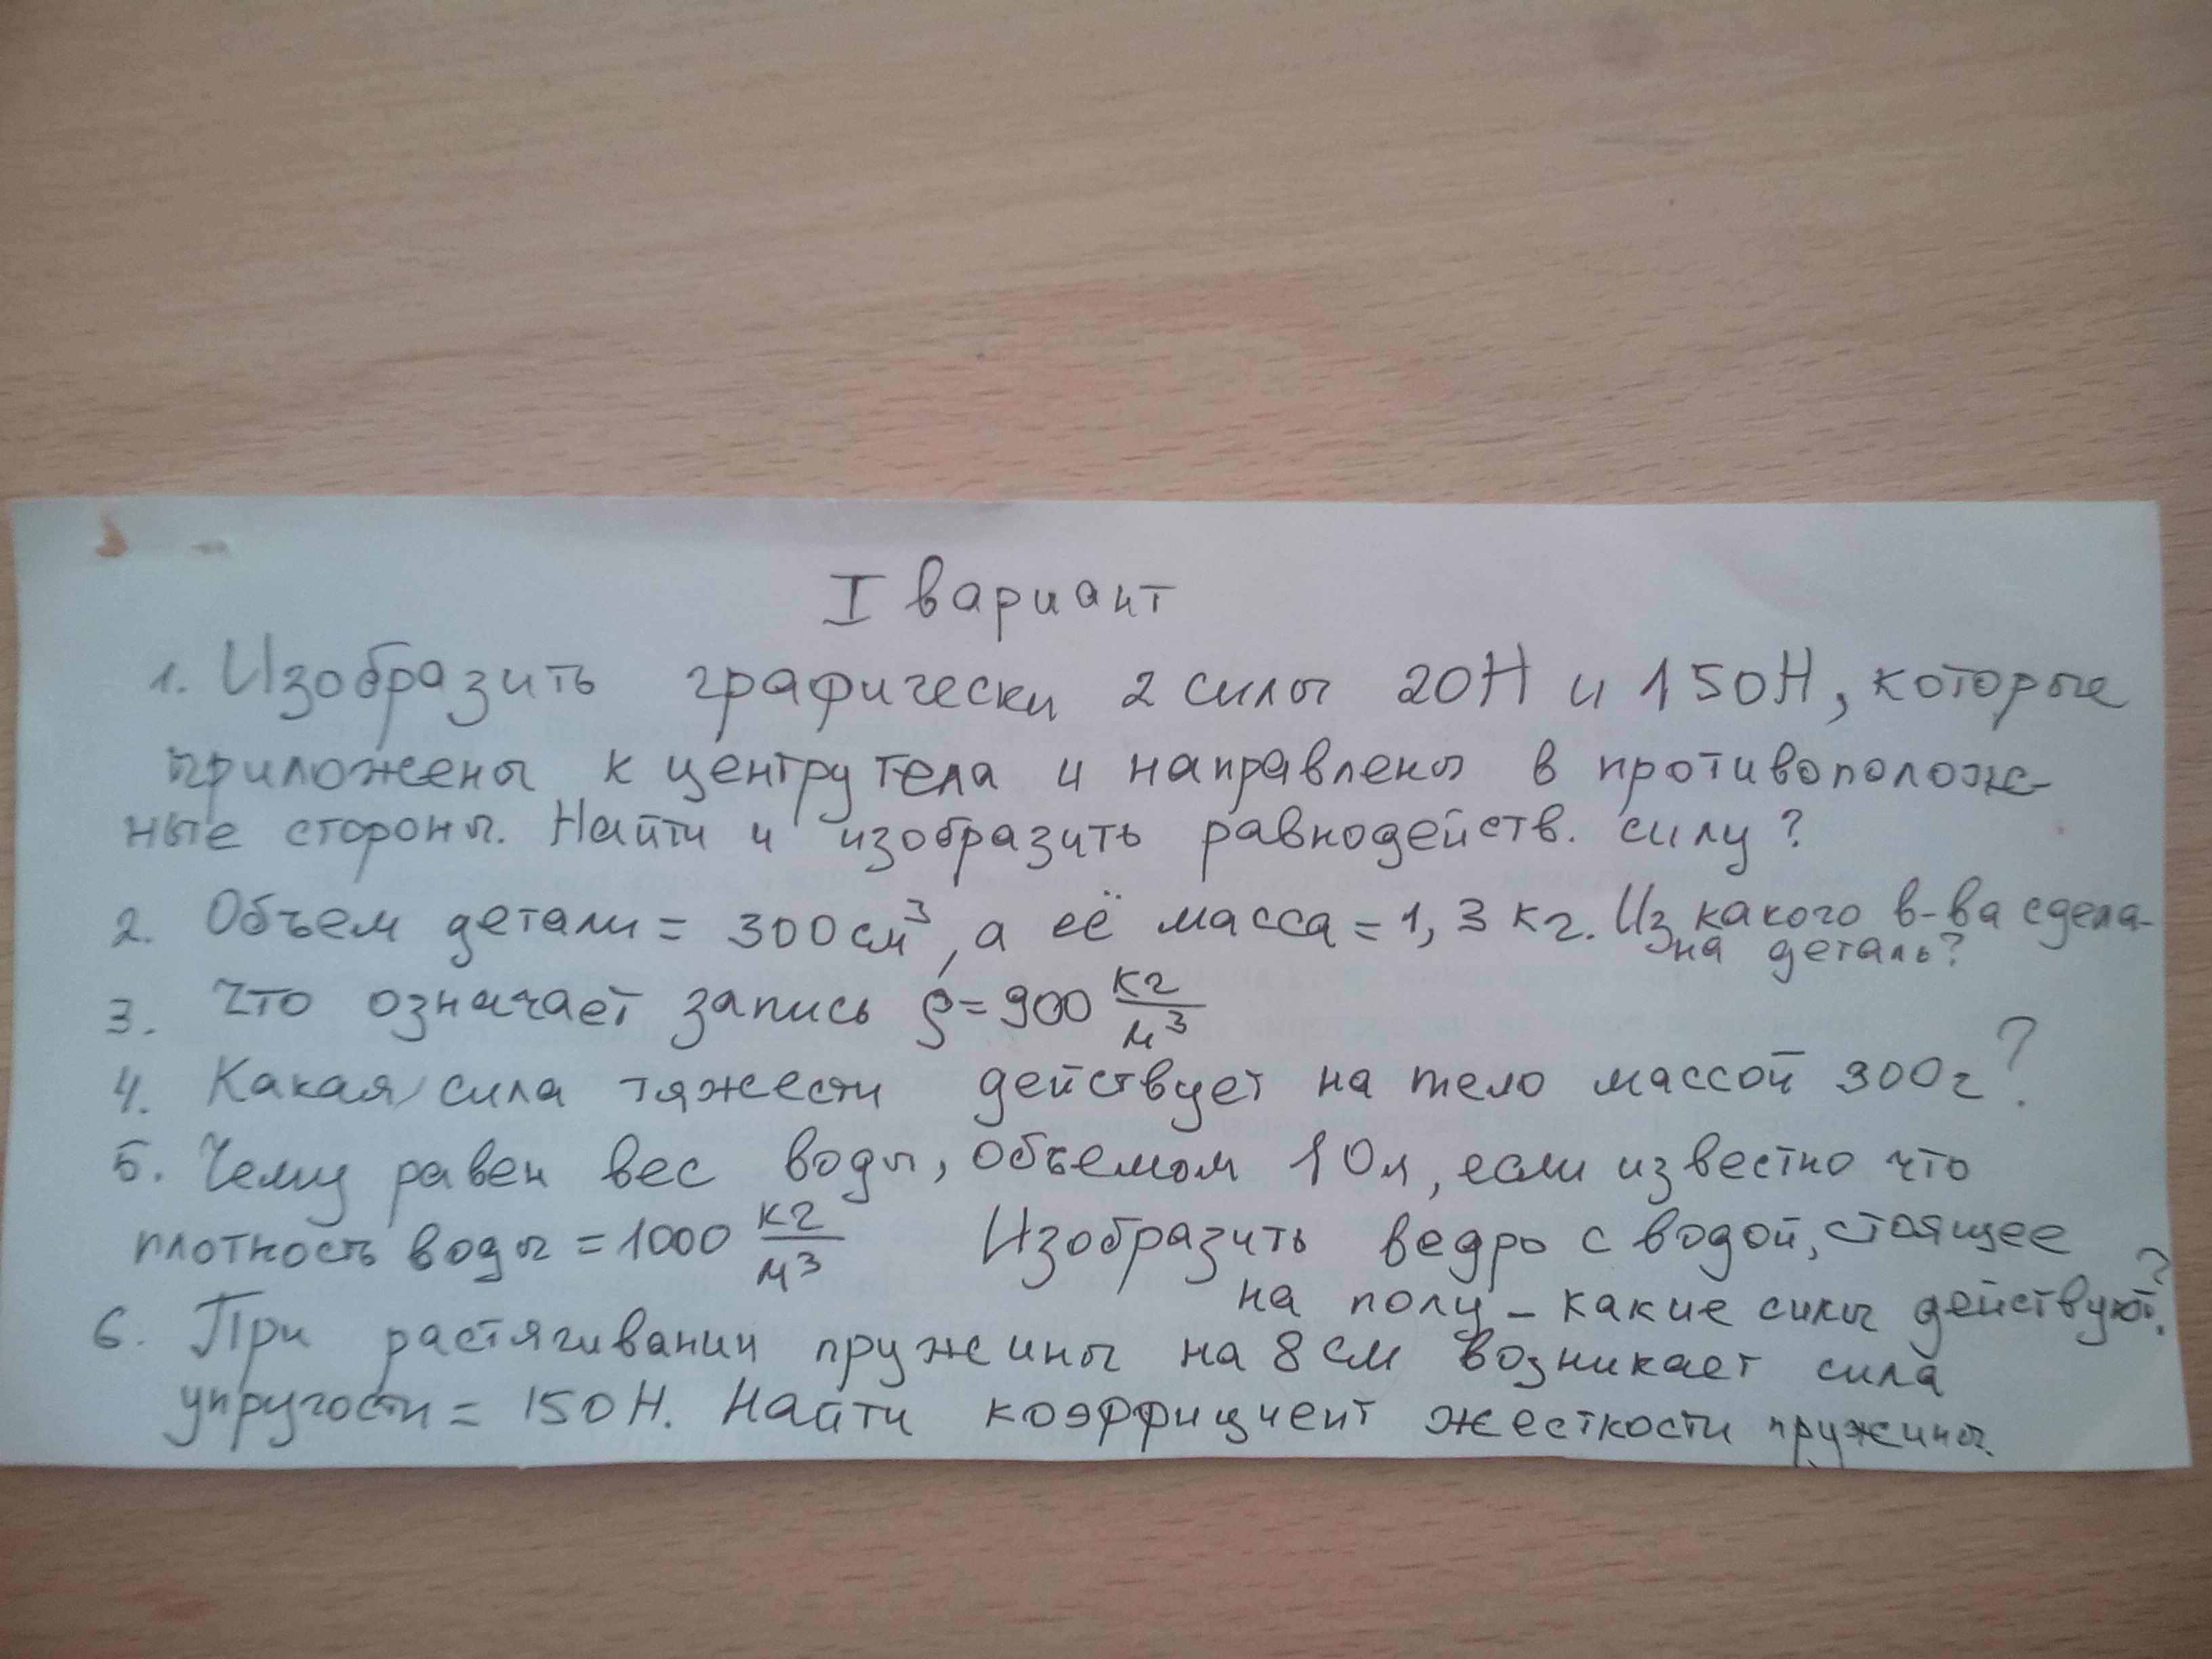 I вариант
1. Изобразить графически 2 силы 20Н и 150Н, которые
приложены к центру тела и направлены в противополож-
ные стороны. Найти и изобразить равнодейств. силу?
2. Объем детали = 300 см³, а её масса = 1,3 кг. Из какого в-ва сдела-
на деталь?
3. Что означает запись ρ = 900 кг/м³
4. Какая сила тяжести действует на тело массой 300г?
5. Чему равен вес воды, объемом 10л, если известно что
плотность воды = 1000 кг/м³ Изобразить ведро с водой, стоящее
на полу - какие силы действуют?
6. При растягивании пружины на 8 см возникает сила
упругости = 150Н. Найти коэффициент жесткости пружины.